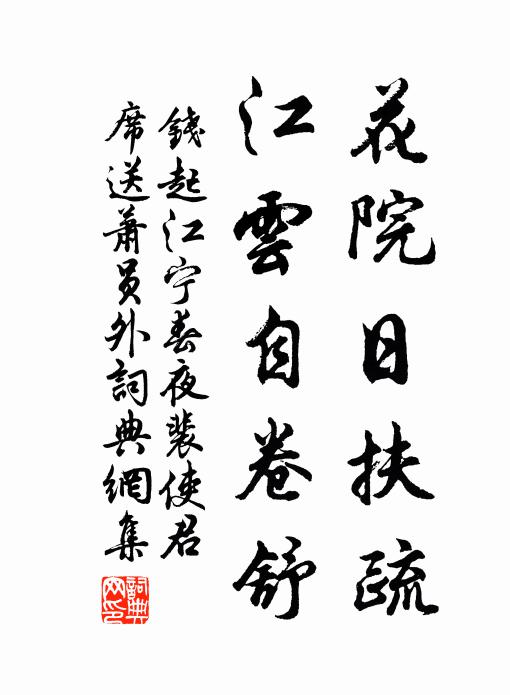 花院日扶疏
江雲自卷舒
錢起江宁春夜裴使君
席送蕭員外詞典網集
詞典
网印